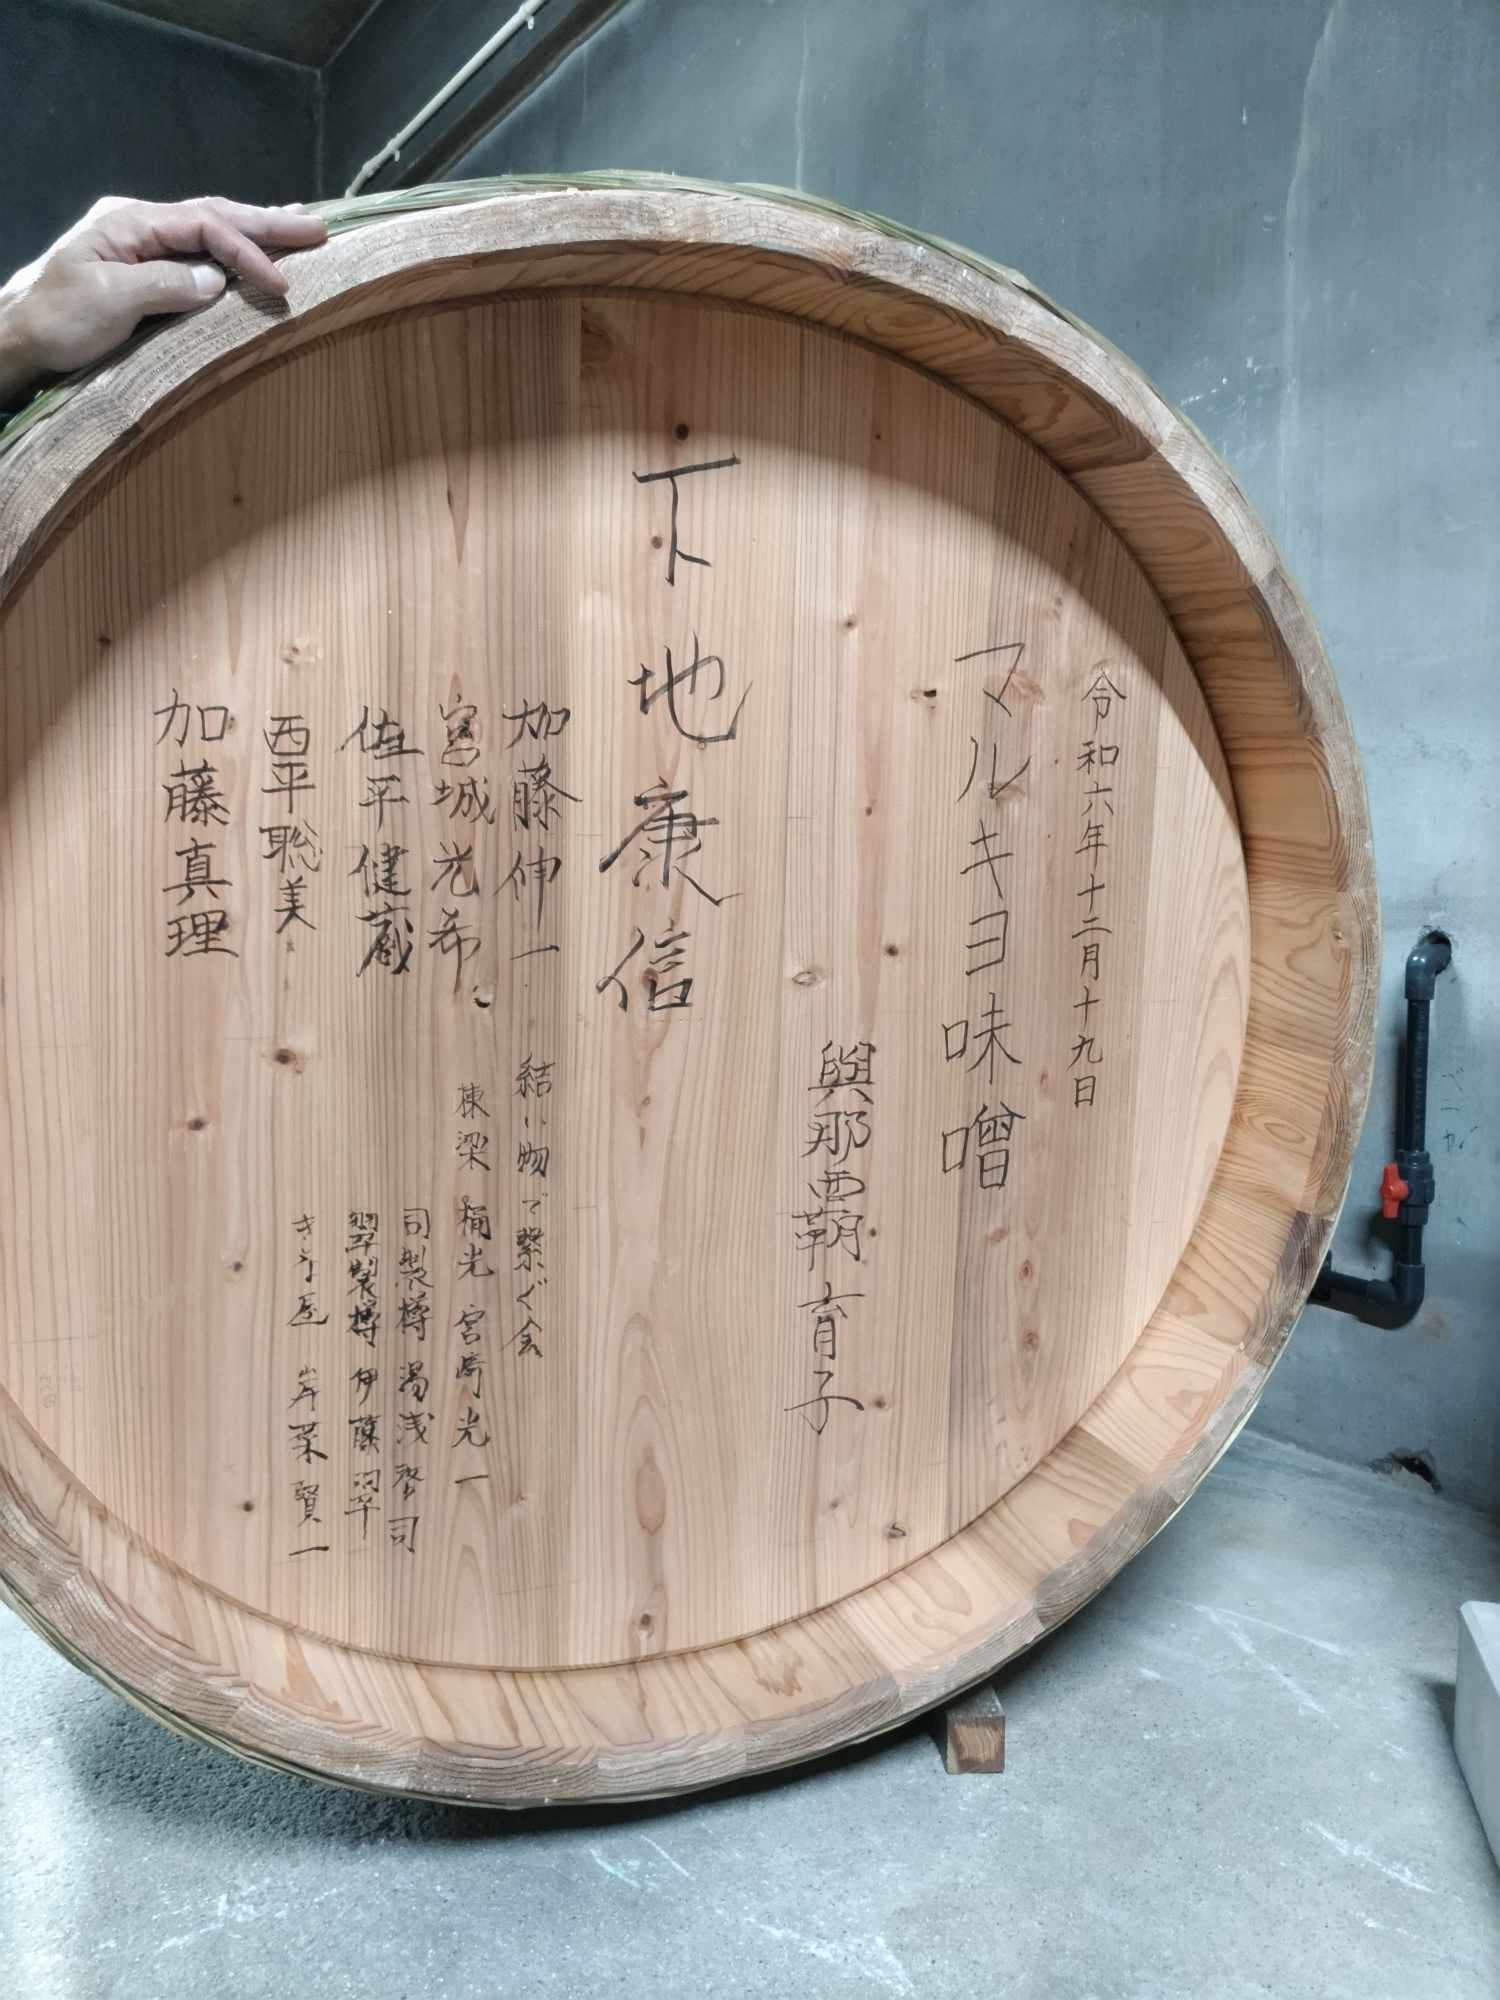 令和六年十二月十九日
マルキヨ味噌
與那覇育子
下地康信
加藤伸一
結い物で繋ぐ会
宮城光希
棟梁 桶光 宮崎光一
佐平健蔵
司製樽 湯浅啓司
翠製樽 伊藤翠
西平聡美
岸菜賢一
加藤真理